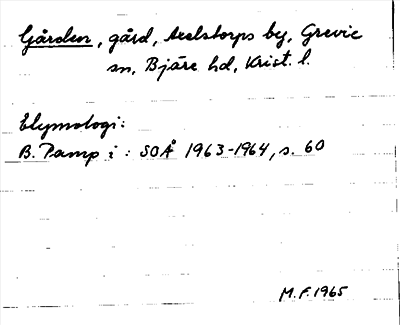 Gården, gård, Axelstorps by, Grevie
sn, Bjäre hd, Krist. l.
Etymologi:
B. Pamp i: SOÅ 1963-1964, s. 60
M.F. 1965